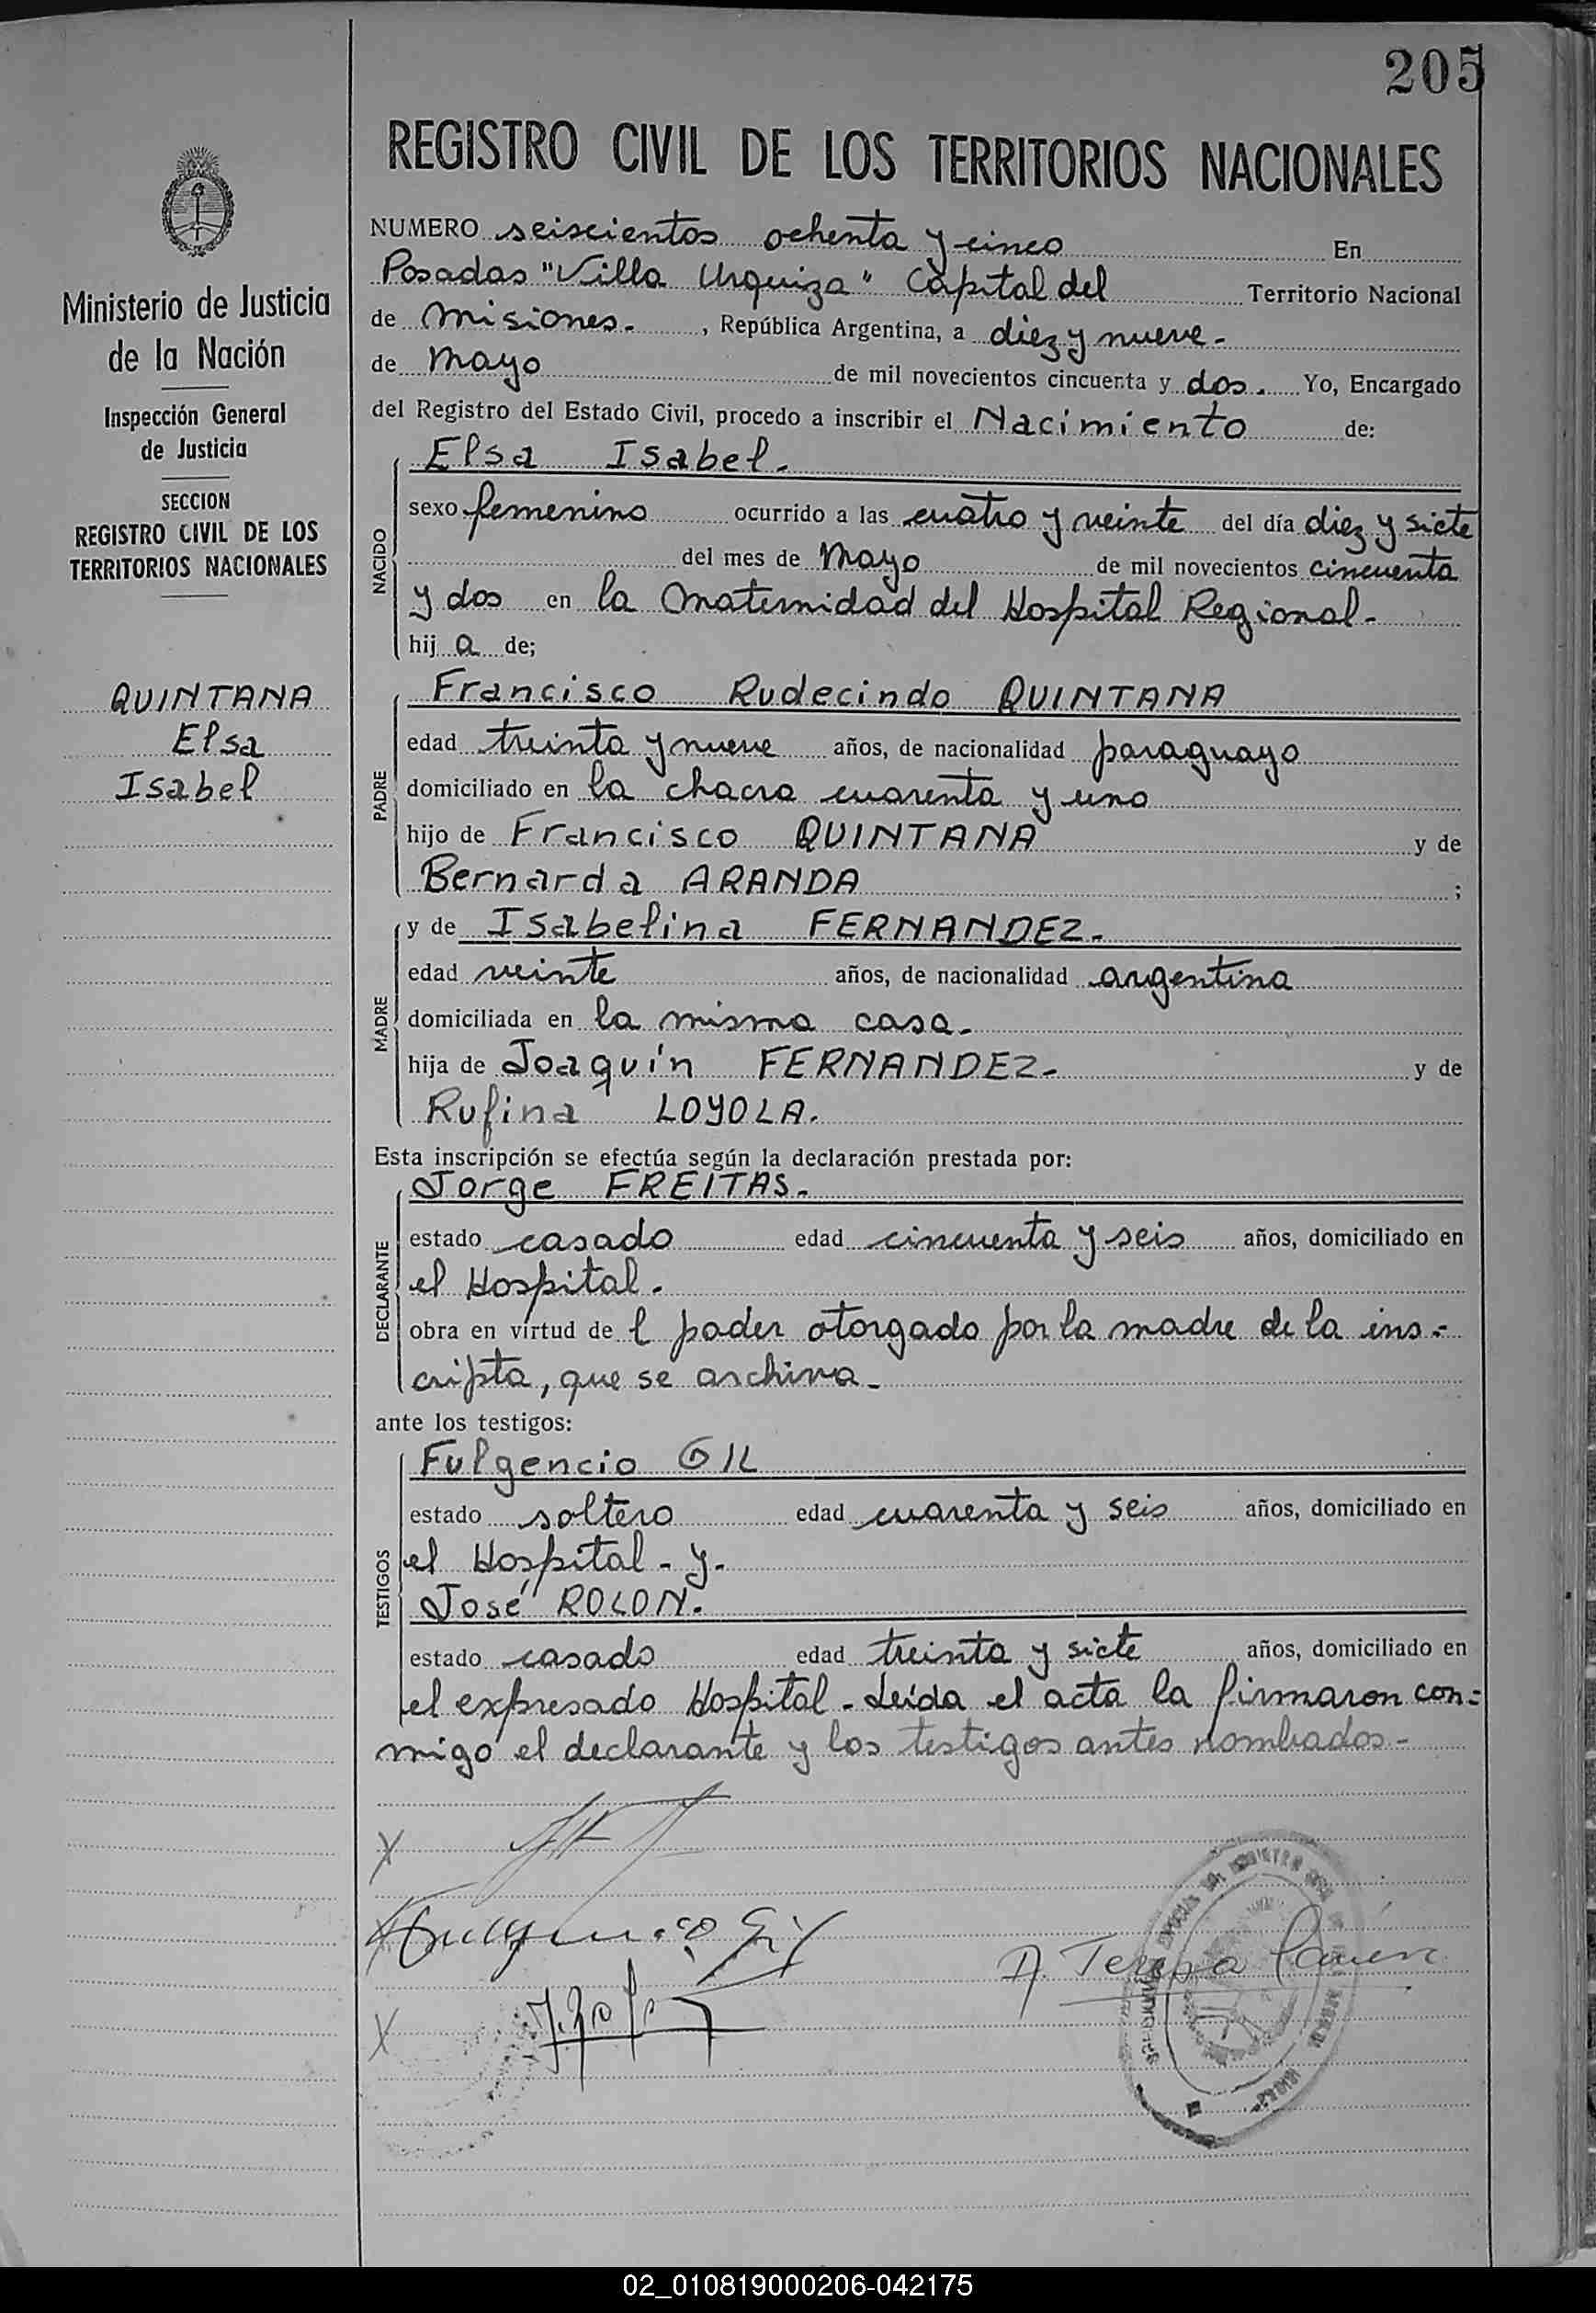 205
REGISTRO CIVIL DE LOS TERRITORIOS NACIONALES
Ministerio de Justicia
de la Nación
Inspección General
de Justicia
SECCION
REGISTRO CIVIL DE LOS
TERRITORIOS NACIONALES
QUINTANA
Elsa
Isabel
NUMERO seiscientos ochenta y cinco En
Posadas "Villa Urquiza" Capital del Territorio Nacional
de Misiones. , República Argentina, a diez y nueve-
de Mayo de mil novecientos cincuenta y dos. Yo, Encargado
del Registro del Estado Civil, procedo a inscribir el Nacimiento de:
NACIDO
Elsa Isabel.
sexo femenino ocurrido a las cuatro y veinte del día diez y siete
del mes de Mayo de mil novecientos cincuenta
y dos en la Maternidad del Hospital Regional-
hij a de;
PADRE
Francisco Rudecindo QUINTANA
edad treinta y nueve años, de nacionalidad paraguayo
domiciliado en la chacra cuarenta y uno
hijo de Francisco QUINTANA y de
Bernarda ARANDA ;
MADRE
y de Isabelina FERNANDEZ-
edad veinte años, de nacionalidad argentina
domiciliada en la misma casa-
hija de Joaquín FERNANDEZ- y de
Rufina LOYOLA.
Esta inscripción se efectúa según la declaración prestada por:
DECLARANTE
Jorge FREITAS-
estado casado edad cincuenta y seis años, domiciliado en
el Hospital.
obra en virtud de l poder otorgado por la madre de la ins-
cripta, que se archiva-
ante los testigos:
TESTIGOS
Fulgencio GIL
estado soltero edad cuarenta y seis años, domiciliado en
el Hospital - y-
José ROLON.
estado casado edad treinta y siete años, domiciliado en
el expresado Hospital - Leída el acta la firmaron con=
migo el declarante y los testigos antes nombrados-
X
Fulgencio Gil
X J. Rolon
A. Teresa
02_010819000206-042175